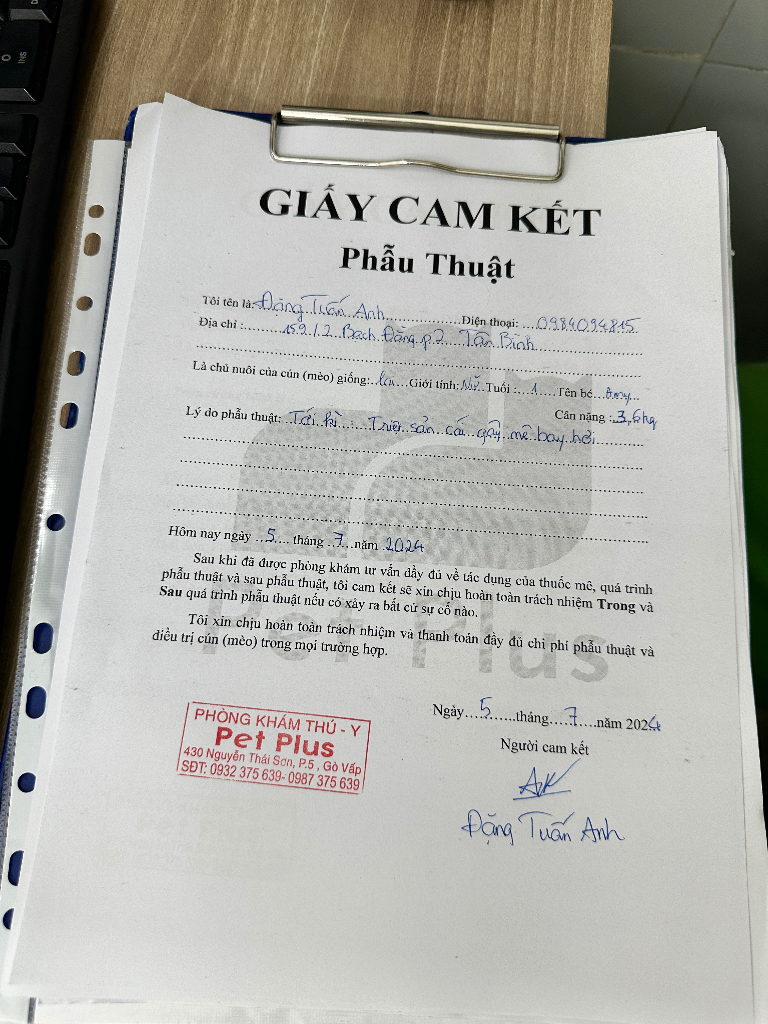 GIẤY CAM KẾT
Phẫu Thuật
Tôi tên là: Đặng Tuấn Anh Điện thoại: 0984094815
Địa chỉ: 159/2 Bạch Đằng p.2 Tân Bình
Là chủ nuôi của cún (mèo) giống: Giới tính: Tuổi: 1 Tên bé:
Cân nặng: 3,6kg
Lý do phẫu thuật: Triệt sản cái gây mê bay hơi
Hôm nay ngày 5 tháng 7 năm 2024
Sau khi đã được phòng khám tư vấn đầy đủ về tác dụng của thuốc mê, quá trình
phẫu thuật và sau phẫu thuật, tôi cam kết sẽ xin chịu hoàn toàn trách nhiệm Trong và
Sau quá trình phẫu thuật nếu có xảy ra bất cứ sự cố nào.
Tôi xin chịu hoàn toàn trách nhiệm và thanh toán đầy đủ chi phí phẫu thuật và
điều trị cún (mèo) trong mọi trường hợp.
Pet Plus
Ngày 5 tháng 7 năm 2024
Người cam kết
PHÒNG KHÁM THÚ - Y
Pet Plus
430 Nguyễn Thái Sơn, P.5, Gò Vấp
SĐT: 0932 375 639- 0987 375 639
Đặng Tuấn Anh
INS